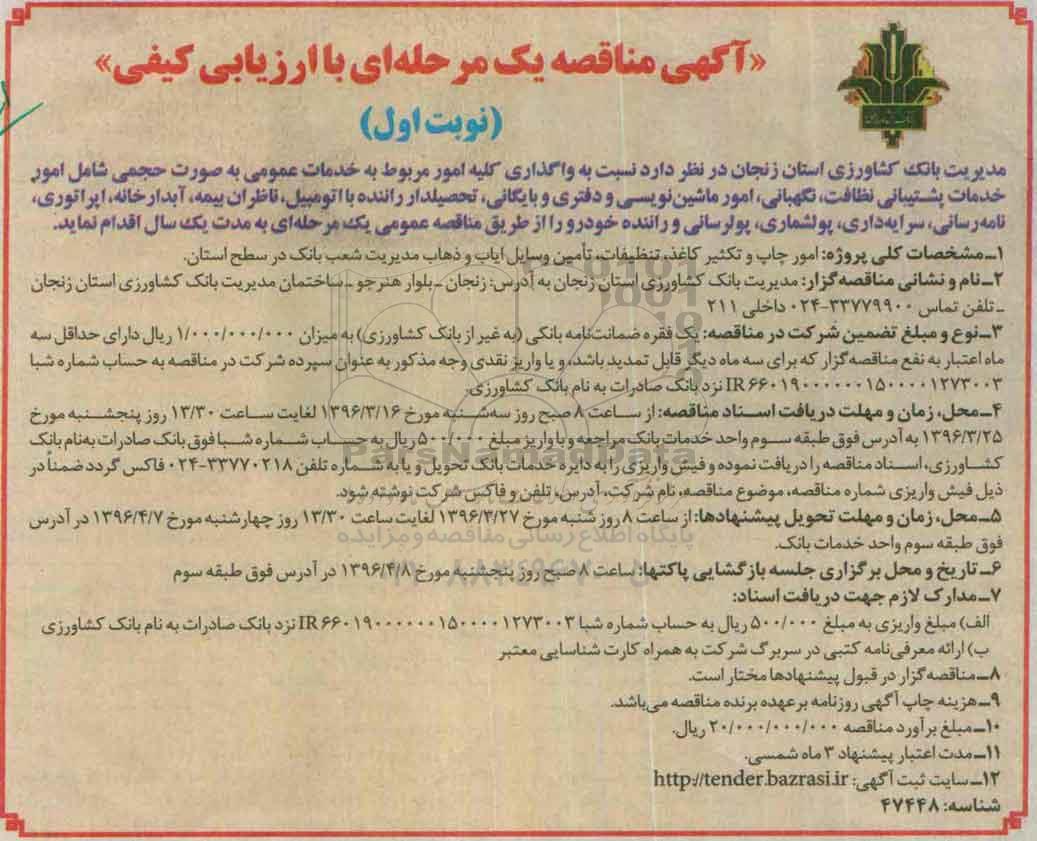 «آگهی مناقصه یک مرحله‌ای با ارزیابی کیفی»
(نوبت اول)
مدیریت بانک کشاورزی استان زنجان در نظر دارد نسبت به واگذاری کلیه امور مربوط به خدمات عمومی به صورت حجمی شامل امور
خدمات پشتیبانی نظافت، نگهبانی، امور ماشین‌نویسی و دفتری و بایگانی، تحصیلدار راننده با اتومبیل، ناظران بیمه، آبدارخانه، اپراتوری،
نامه‌رسانی، سرایه‌داری، پولشماری، پولرسانی و راننده خودرو را از طریق مناقصه عمومی یک مرحله‌ای به مدت یک سال اقدام نماید.
۱ـ مشخصات کلی پروژه: امور چاپ و تکثیر کاغذ، تنظیفات، تأمین وسایل ایاب و ذهاب مدیریت شعب بانک در سطح استان.
۲ـ نام و نشانی مناقصه‌گزار: مدیریت بانک کشاورزی استان زنجان به آدرس: زنجان ـ بلوار هنرجو ـ ساختمان مدیریت بانک کشاورزی استان زنجان
ـ تلفن تماس ۳۳۷۷۹۹۰۰-۰۲۴ داخلی ۲۱۱
۳ـ نوع و مبلغ تضمین شرکت در مناقصه: یک فقره ضمانت‌نامه بانکی (به غیر از بانک کشاورزی) به میزان ۱/۰۰۰/۰۰۰/۰۰۰ ریال دارای حداقل سه
ماه اعتبار به نفع مناقصه‌گزار که برای سه ماه دیگر قابل تمدید باشد، و یا واریز نقدی وجه مذکور به عنوان سپرده شرکت در مناقصه به حساب شماره شبا
IR۶۶۰۱۹۰۰۰۰۰۰۰۱۵۰۰۰۰۱۲۷۳۰۰۳ نزد بانک صادرات به نام بانک کشاورزی.
۴ـ محل، زمان و مهلت دریافت اسناد مناقصه: از ساعت ۸ صبح روز سه‌شنبه مورخ ۱۳۹۶/۳/۱۶ لغایت ساعت ۱۳/۳۰ روز پنجشنبه مورخ
۱۳۹۶/۳/۲۵ به آدرس فوق طبقه سوم واحد خدمات بانک مراجعه و با واریز مبلغ ۵۰۰/۰۰۰ ریال به حساب شماره شبا فوق بانک صادرات به‌نام بانک
کشاورزی، اسناد مناقصه را دریافت نموده و فیش واریزی را به دایره خدمات بانک تحویل و یا به شماره تلفن ۳۳۷۷۰۲۱۸-۰۲۴ فاکس گردد ضمناً در
ذیل فیش واریزی شماره مناقصه، موضوع مناقصه، نام شرکت، آدرس، تلفن و فاکس شرکت نوشته شود.
۵ـ محل، زمان و مهلت تحویل پیشنهادها: از ساعت ۸ روز شنبه مورخ ۱۳۹۶/۳/۲۷ لغایت ساعت ۱۳/۳۰ روز چهارشنبه مورخ ۱۳۹۶/۴/۷ در آدرس
فوق طبقه سوم واحد خدمات بانک.
۶ـ تاریخ و محل برگزاری جلسه بازگشایی پاکتها: ساعت ۸ صبح روز پنجشنبه مورخ ۱۳۹۶/۴/۸ در آدرس فوق طبقه سوم
۷ـ مدارک لازم جهت دریافت اسناد:
الف) مبلغ واریزی به مبلغ ۵۰۰/۰۰۰ ریال به حساب شماره شبا IR۶۶۰۱۹۰۰۰۰۰۰۰۱۵۰۰۰۰۱۲۷۳۰۰۳ نزد بانک صادرات به نام بانک کشاورزی
ب) ارائه معرفی‌نامه کتبی در سربرگ شرکت به همراه کارت شناسایی معتبر
۸ـ مناقصه‌گزار در قبول پیشنهادها مختار است.
۹ـ هزینه چاپ آگهی روزنامه برعهده برنده مناقصه می‌باشد.
۱۰ـ مبلغ برآورد مناقصه ۲۰/۰۰۰/۰۰۰/۰۰۰ ریال.
۱۱ـ مدت اعتبار پیشنهاد ۳ ماه شمسی.
۱۲ـ سایت ثبت آگهی: http://tender.bazrasi.ir
شناسه: ۴۷۴۴۸
ParsNamadData
پایگاه اطلاع رسانی مناقصه و مزایده